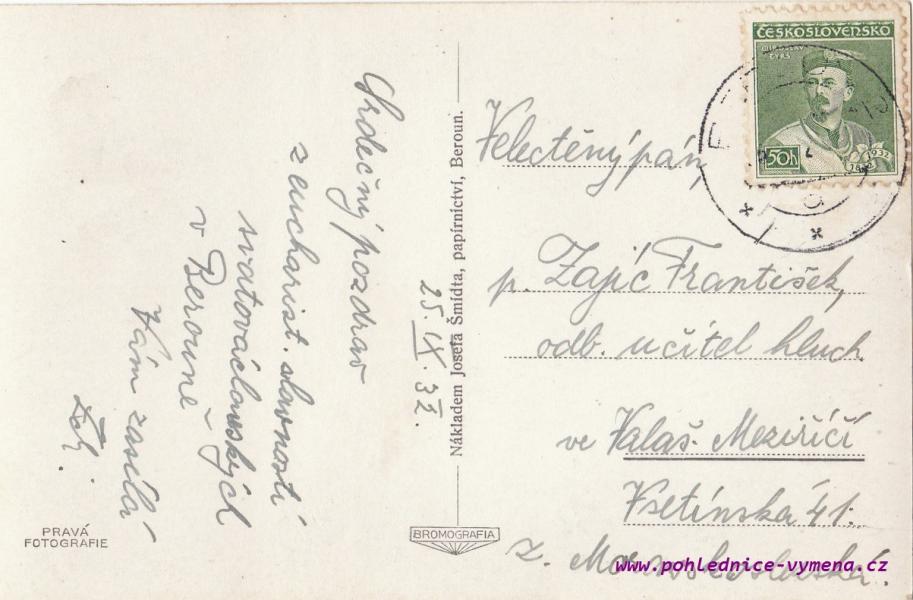 ČESKOSLOVENSKO
MIROSLAV
TYRŠ
50h
1832
1932
Srdečný pozdrav
z eucharist. slavností
svatováclavských
v Berouně
Vám zasílá
25.IX.32.
Nákladem Josefa Šmídta, papírnictví, Beroun.
Velectěný pán,
p. Zajíc František,
odb. učitel hluch.
ve Valaš. Meziříčí
Vsetínská 41.
Z. Moravskoslezská.
PRAVÁ
FOTOGRAFIE
BROMOGRAFIA
www.pohlednice-vymena.cz